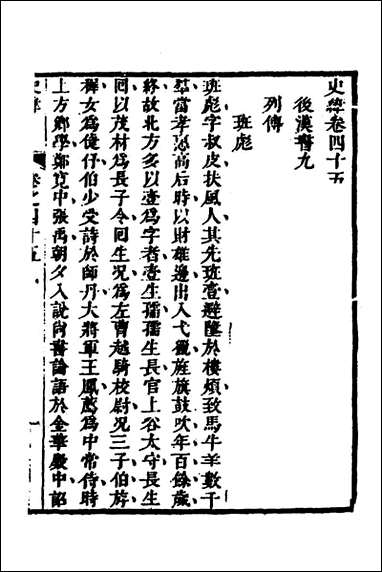 史緯卷四十五
後漢書九
列傳
班彪
班彪字叔皮扶風人其先班壹避墬於樓煩致馬牛羊數千
羣當孝惠高后時以財雄邊出入弋獵旌旗鼓吹年百餘歲
終故北方多以壹爲字者壹生孺孺生長官上谷太守長生
回以茂材爲長子令回生況爲左曹越騎校尉況三子伯斿
穉女爲倢伃伯少受詩於師丹大將軍王鳳薦爲中常侍時
上方鄉學鄭寬中張禹朝夕入說尙書論語於金華殿中詔
史緯
卷之四十五
一